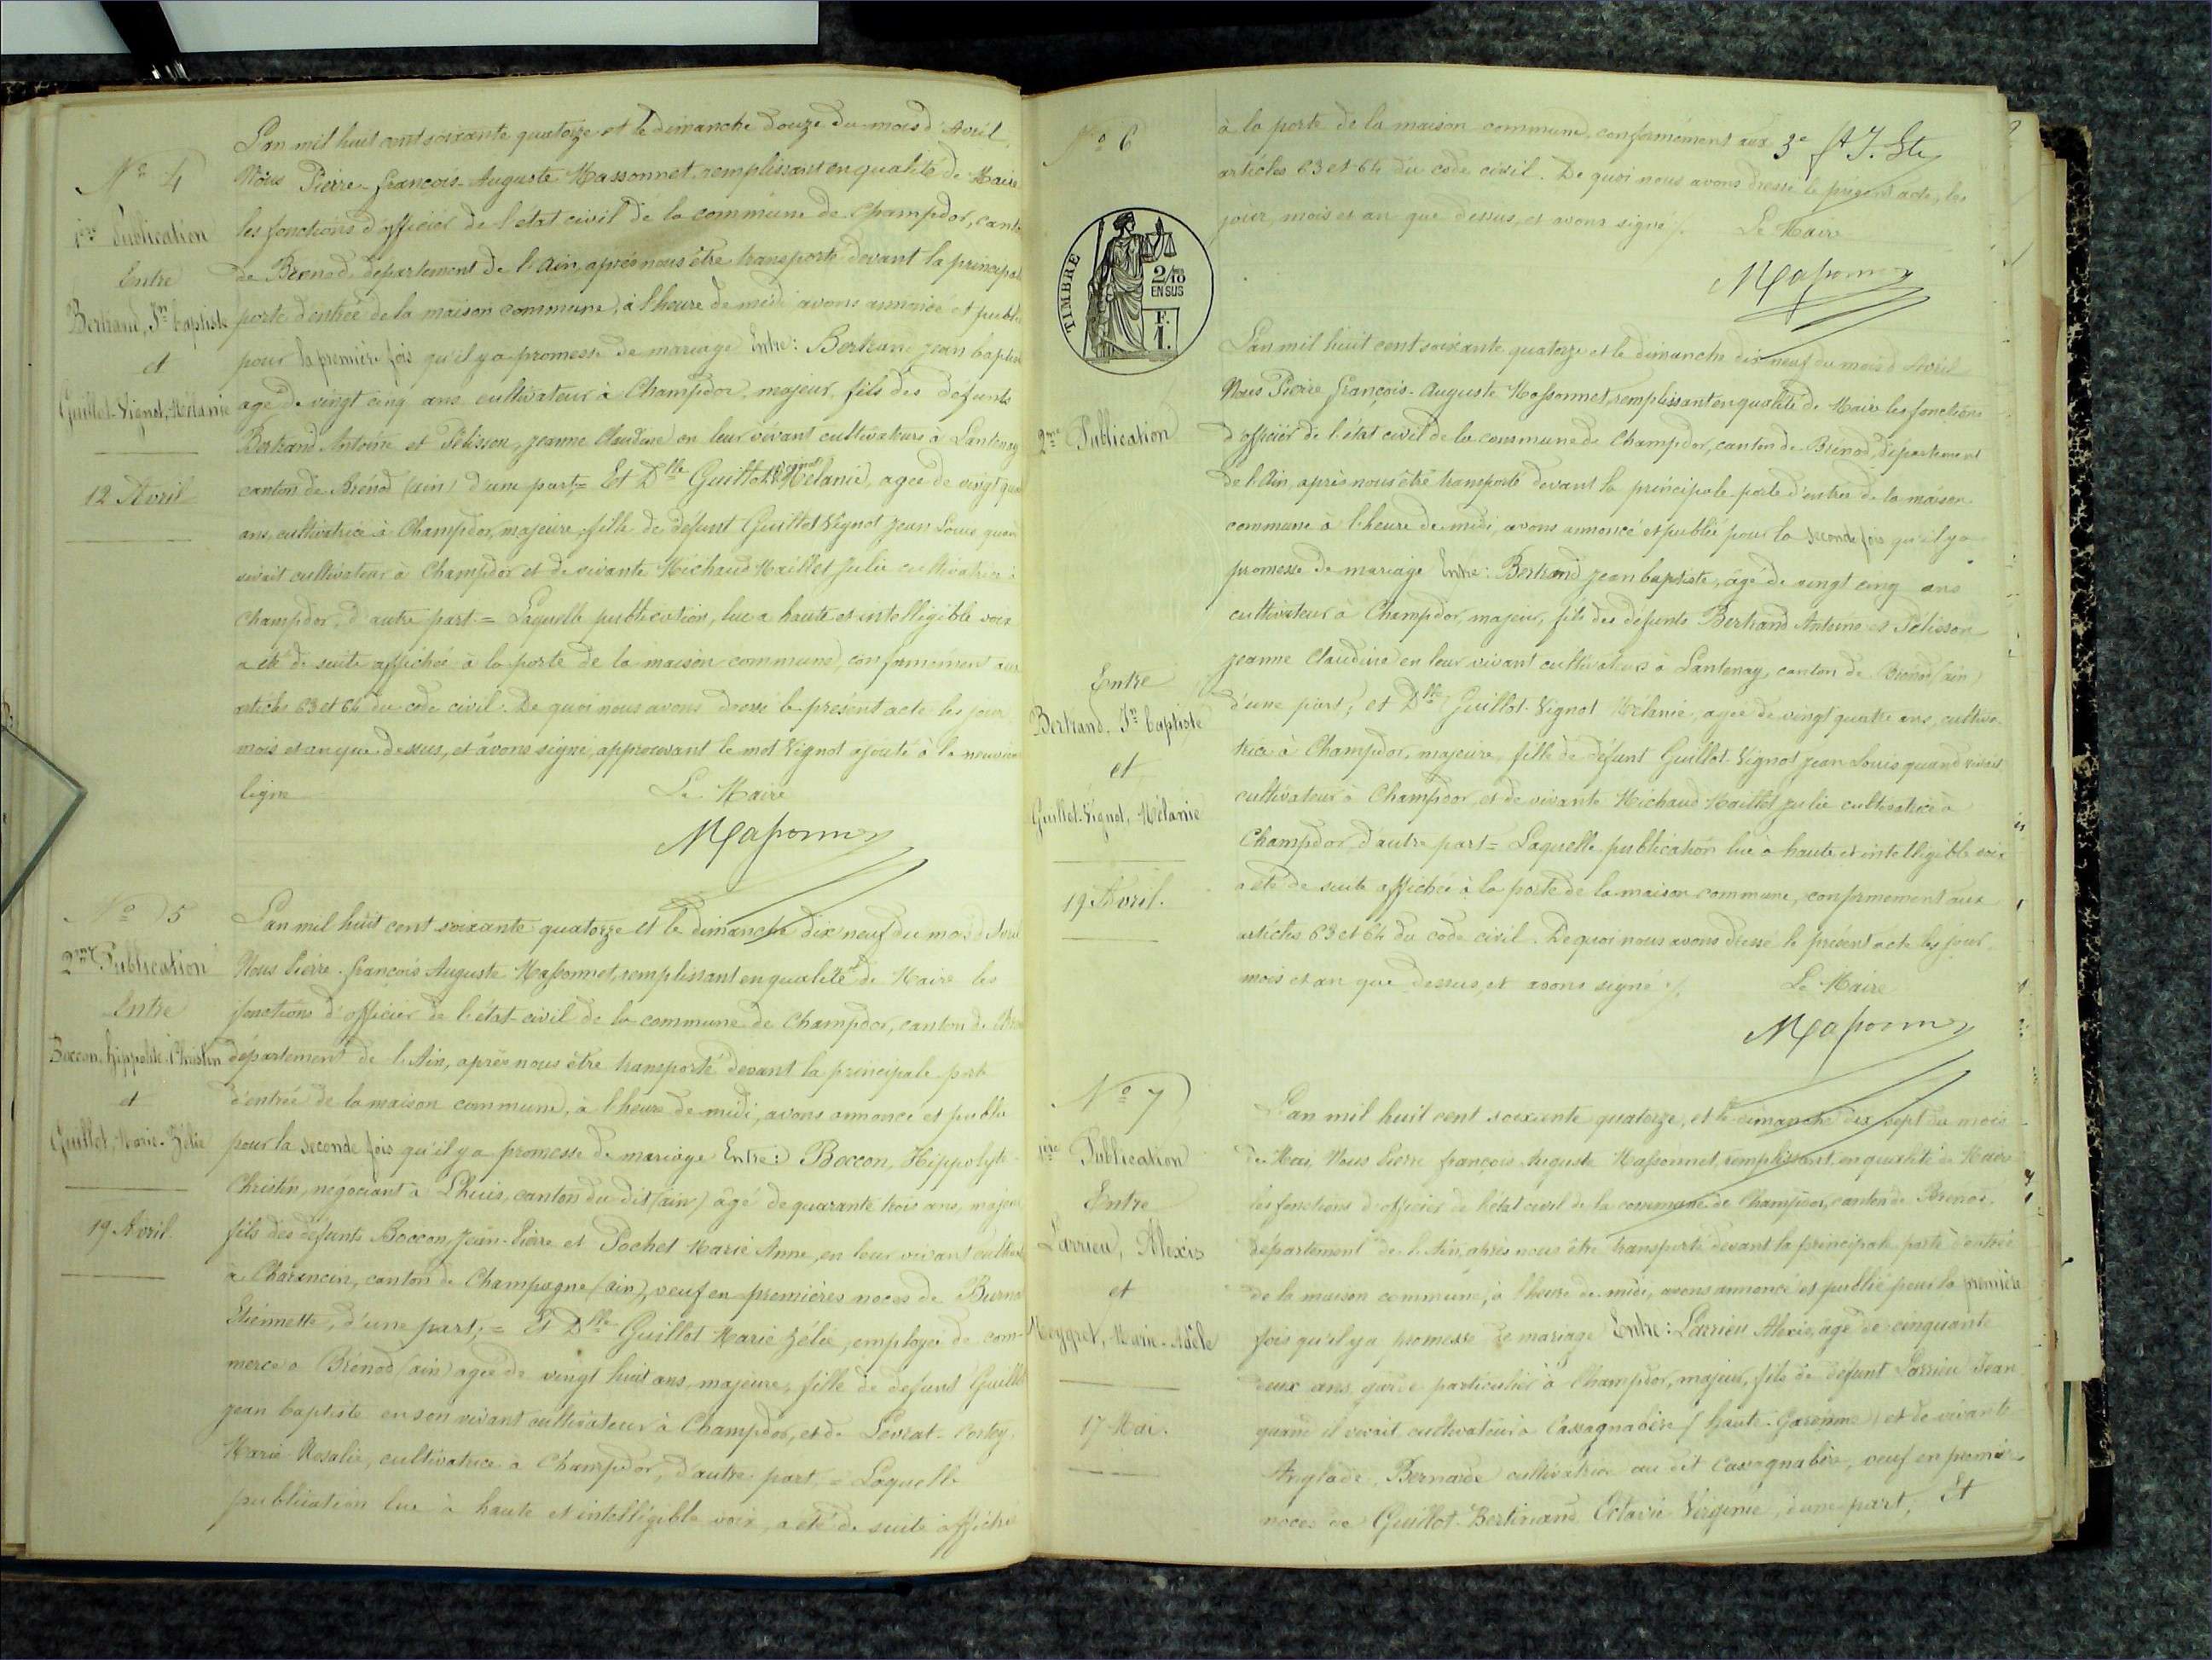 Nº 4
1ère Publication
Entre
Bertrand, Jn baptiste
et
Guillot-Vignot, Mélanie
12 Avril
L'an mil huit cent soixante quatorze et le dimanche douze du mois d'Avril,
Nous Pierre-François-Auguste Massonnet, remplissant en qualité de Maire
les fonctions d'officier de l'état civil de la commune de Champdor, cant
de Brenod, département de l'Ain, après nous être transporté devant la principal
porte d'entrée de la maison commune, à l'heure de midi avons annoncé et publ
pour la première fois qu'il y a promesse de mariage Entre: Bertrand jean baptis
age de vingt cinq ans cultivateur à Champdor, majeur, fils des défunts
Bertrand Antoine et Pélisson, jeanne Claudine en leur vivant cultivateurs à Lantenay
canton de Brénod (ain) d'une part,= Et Dlle Guillot Vignot Mélanie, agée de vingt qua
ans, cultivatrice à Champdor, majeure, fille de défunt Guillot Vignot Jean Louis quan
vivait cultivateur à Champdor et de vivante Michaud Maillet julie cultivatrice à
Champdor, d'autre part.= Laquelle publication, lue a haute et intelligible voix
a été de suite affichée à la porte de la maison commune, conformément aux
articles 63 et 64 du code civil. De quoi nous avons dressé le présent acte les jour,
mois et an que dessus, et avons signé, approuvant le mot Vignot ajouté à la neuvième
ligne
Le Maire
Massonnet
Nº 5
2me Publication
Entre
Boccon, hippolite-Christin
et
Guillot, Marie-Zélie
19 Avril
L'an mil huit cent soixante quatorze et le dimanche dix neuf du mois d'Avril
Nous Pierre-françois Auguste Massonnet, remplissant en qualité de Maire les
fonctions d'officier de l'état-civil de la commune de Champdor, canton de Bren
département de l'Ain, après nous être transporté devant la principale porte
d'entrée de la maison commune, à l'heure de midi, avons annoncé et publié
pour la seconde fois qu'il y a promesse de mariage Entre: Boccon, Hippolyte-
Christin, négociant à Lhuis, canton du dit (ain) âgé de quarante trois ans, majeur
fils des défunts Boccon Jean-Pierre et Pochet Marie Anne, en leur vivant cultiv
à Charancin, canton de Champagne (ain), veuf en premières noces de Burna
Etiennette, d'une part;= Et Dlle Guillot Marie Zélie, employée de com-
merce a Brénod (ain) agée de vingt huit ans, majeure, fille de défunt Guillot
jean baptiste en son vivant cultivateur à Champdor, et de Levrat-
Marie Rosalie, cultivatrice à Champdor, d'autre part,= Laquelle
publication lue à haute et intelligible voix, a été de suite affichée
Nº 6
2me Publication
Entre
Bertrand, Jn baptiste
et
Guillot-Vignot, Mélanie
19 Avril.
TIMBRE
2/10
EN SUS
F.
1.
à la porte de la maison commune, conformément aux
articles 63 et 64 du code civil. De quoi nous avons dressé le présent acte, les
jour, mois et an que dessus, et avons signé
Le Maire
Massonnet
L'an mil huit cent soixante quatorze et le dimanche dix neuf du mois d'Avril
Nous Pierre François-Auguste Massonnet, remplissant en qualité de Maire les fonctions
d'officier de l'état civil de la commune de Champdor, canton de Brenod, département
de l'Ain, après nous être transporté devant la principale porte d'entrée de la maison
commune à l'heure de midi, avons annoncé et publié pour la seconde fois qu'il y a
promesse de mariage Entre: Bertrand jean baptiste, âgé de vingt cinq ans
cultivateur à Champdor, majeur, fils des défunts Bertrand Antoine et Pélisson
jeanne Claudine en leur vivant cultivateurs à Lantenay, canton de Brénod (ain)
d'une part; et Dlle Guillot-Vignot Mélanie, agée de vingt quatre ans, cultiva-
trice à Champdor, majeure, fille de défunt Guillot-Vignot jean Louis quand vivait
cultivateur à Champdor, et de vivante Michaud Maillet julie cultivatrice à
Champdor, d'autre part= Laquelle publication lue à haute et intelligible voix
a été de suite affichée à la porte de la maison commune, conformement aux
articles 63 et 64 du code civil. De quoi nous avons dressé le présent acte les jour,
mois et an que dessus, et avons signé
Le Maire
Massonnet
Nº 7
1ère Publication
Entre
Larrieu, Alexis
et
Meygret, Marie-Adèle
17 Mai.
L'an mil huit cent soixante quatorze, et le dimanche dix sept du mois
de Mai, Nous Pierre françois Auguste Massonnet, remplissant en qualité de Maire
les fonctions d'officier de l'état civil de la commune de Champdor, canton de Brenod,
département de l'Ain, après nous être transporté devant la principale porte d'entrée
de la maison commune, à l'heure de midi, avons annoncé et publié pour la première
fois qu'il y a promesse de mariage Entre: Larrieu Alexis, âgé de cinquante
deux ans, garde particulier à Champdor, majeur, fils de défunt Larrieu Jean
quand il vivait cultivateur à Cassagnabère (haute-Garonne) et de vivante
Anglade, Bernarde cultivatrice au dit Cassagnabère, veuf en premières
noces de Guillot-Bertinand Octavie Virginie, d'une part, Et